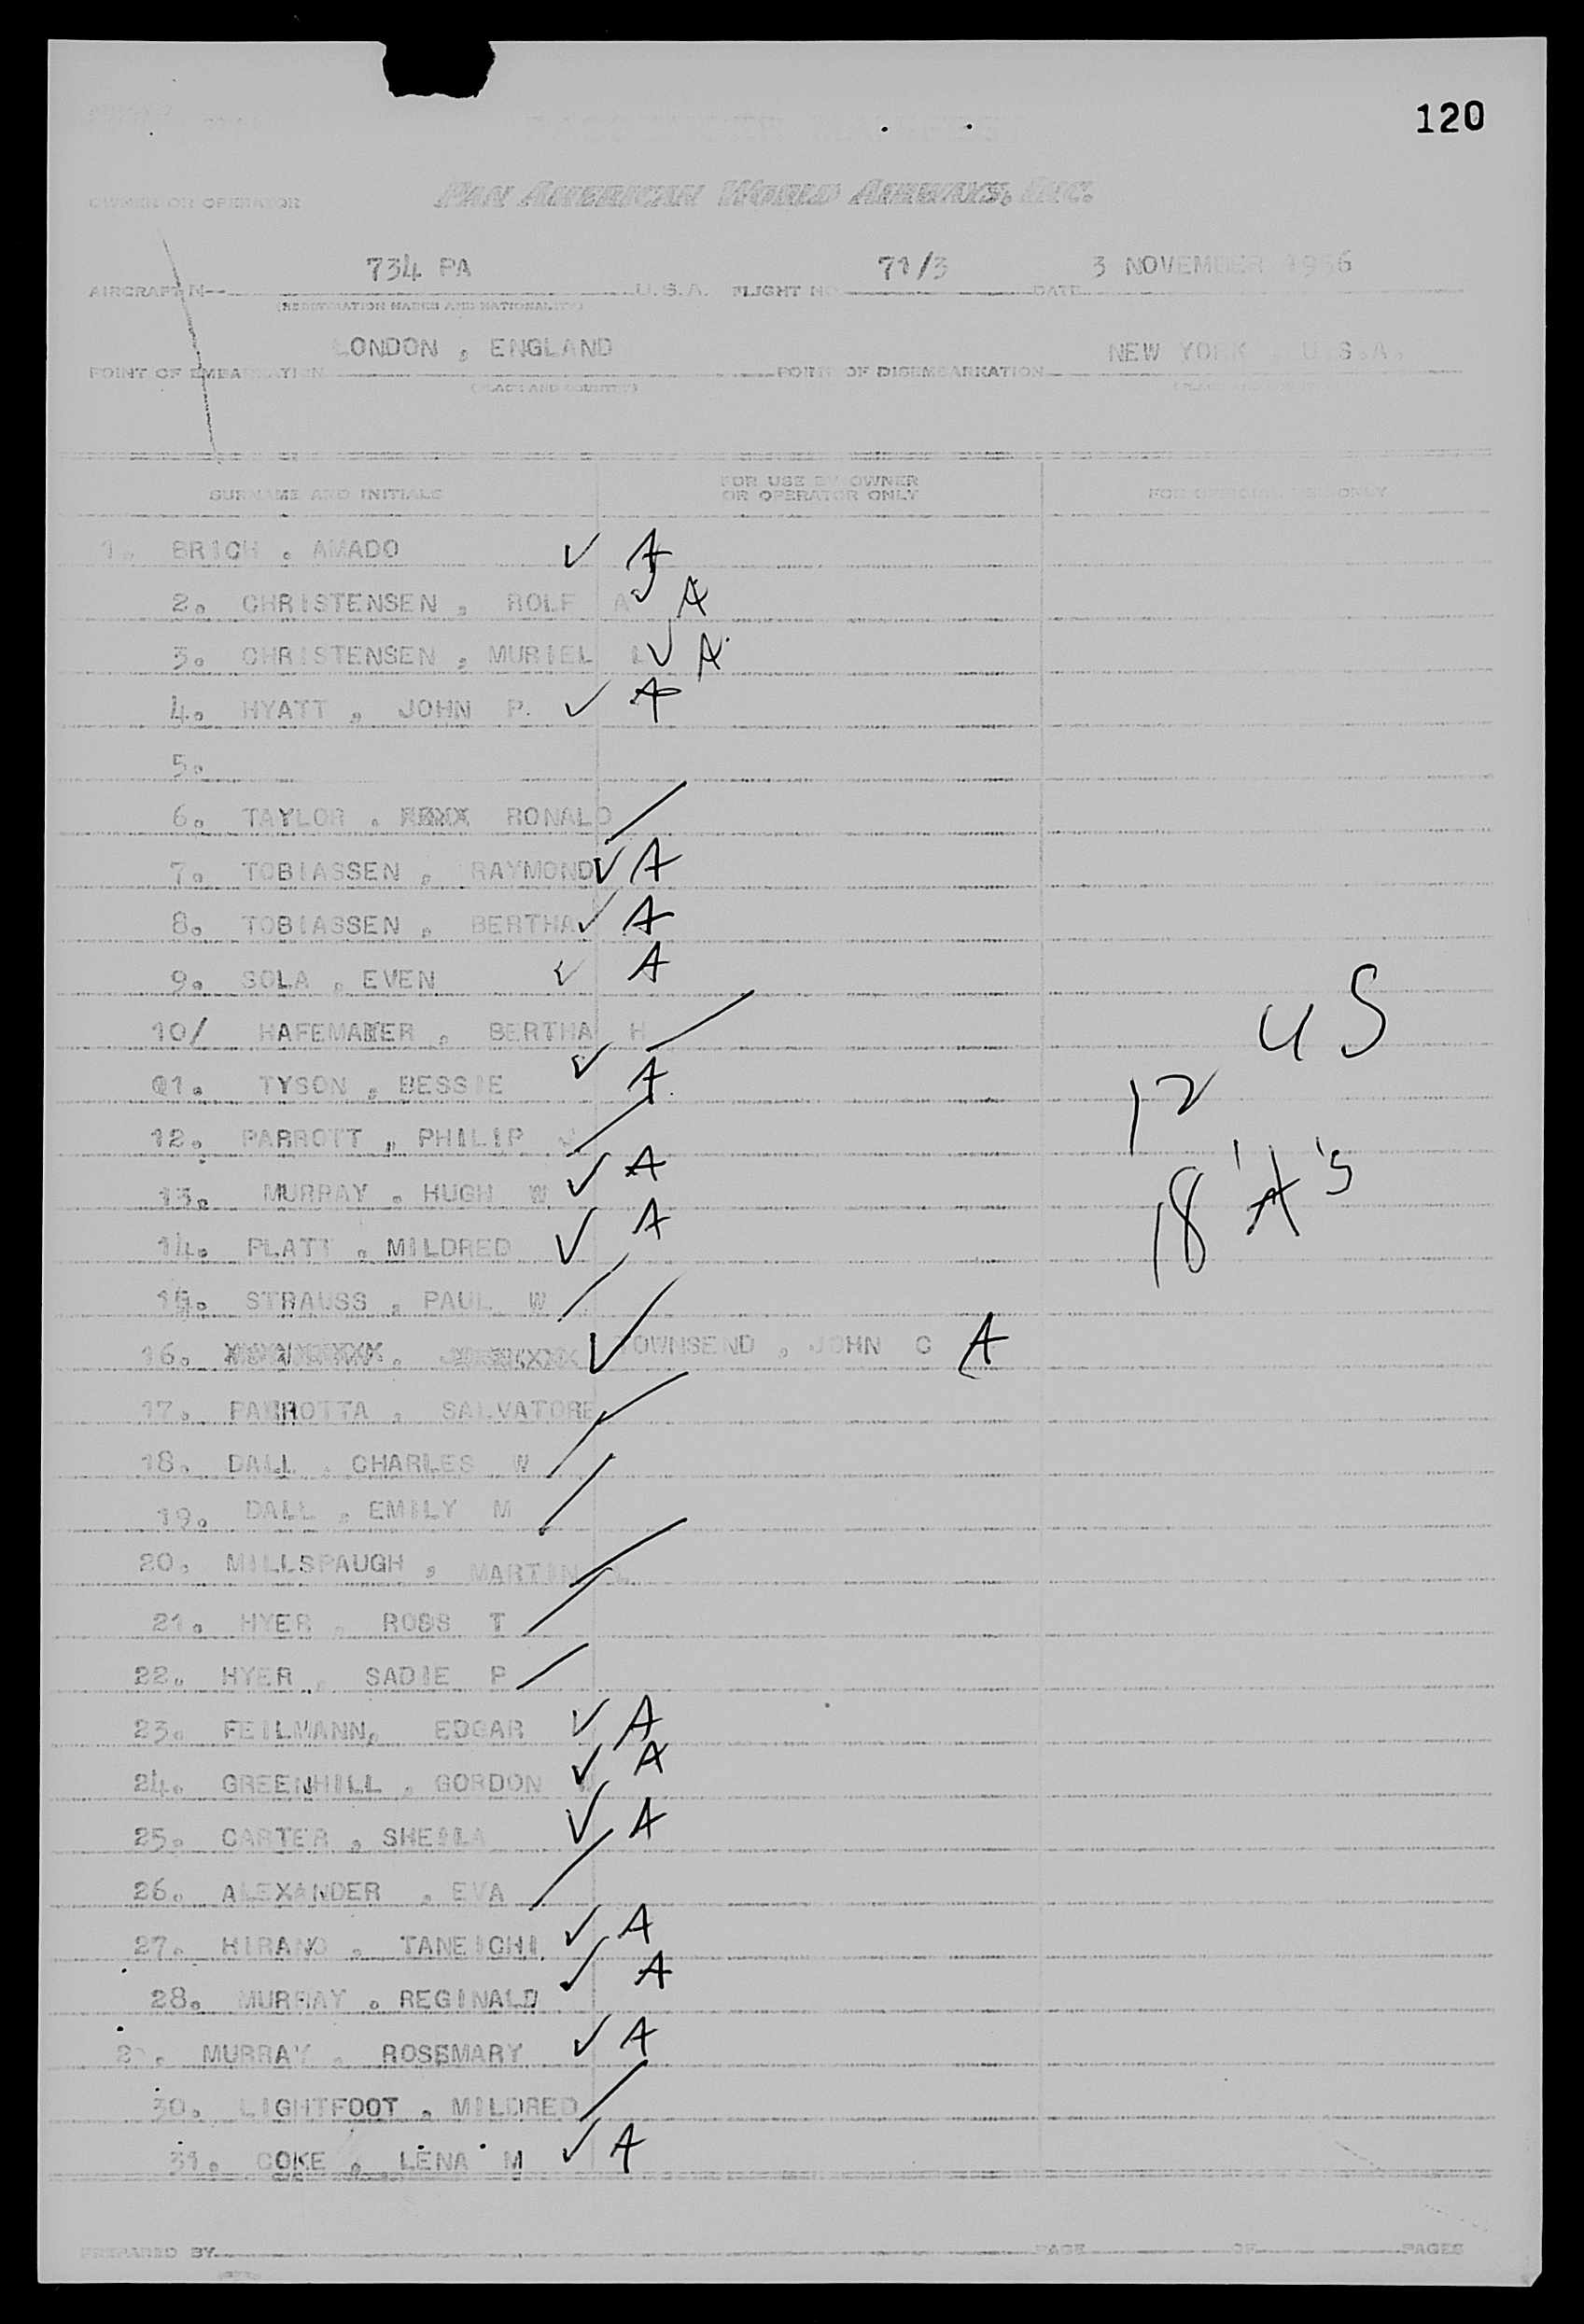 120
OWNER OR OPERATOR PAN AMERICAN WORLD AIRWAYS, INC.
AIRCRAFT N-- 734 PA U.S.A. FLIGHT NO 71/3 DATE 3 NOVEMBER 1956
(REGISTRATION MARKS AND NATIONALITY)
POINT OF EMBARKATION LONDON , ENGLAND PORT OF DISEMBARKATION NEW YORK , U.S.A.
(PLACE AND COUNTRY)
SURNAME AND INITIALS FOR USE BY OWNER OR OPERATOR ONLY FOR OFFICIAL USE ONLY
1. BRICH , AMADO ✓ A
2. CHRISTENSEN , ROLF A ✓ A
3. CHRISTENSEN , MURIEL L ✓ A
4. HYATT , JOHN P. ✓ A
5.
6. TAYLOR , RONALD /
7. TOBIASSEN , RAYMOND ✓ A
8. TOBIASSEN , BERTHA ✓ A
9. SOLA , EVEN ✓ A
10/ HAFEMAKER , BERTHA H /
11. TYSON , BESSIE ✓ A
12. PARROTT , PHILIP J /
13. MURRAY , HUGH W ✓ A
14. PLATT , MILDRED ✓ A
15. STRAUSS , PAUL W /
16. ✓ TOWNSEND , JOHN G A
17. PARROTTA , SALVATORE /
18. DALL , CHARLES W /
19. DALL , EMILY M /
20. MILLSPAUGH , MARTIN L /
21. HYER , ROSS T /
22. HYER , SADIE P /
23. FEILMANN, EDGAR ✓ A
24. GREENHILL , GORDON W ✓ A
25. CARTER , SHEILA ✓ A
26. ALEXANDER , EVA /
27. HIRANO , TANEICHI ✓ A
28. MURRAY , REGINALD ✓ A
29. MURRAY , ROSEMARY ✓ A
30. LIGHTFOOT , MILDRED /
31. COKE , LENA M ✓ A
12 US
18 'A's
PREPARED BY PAGE OF PAGES